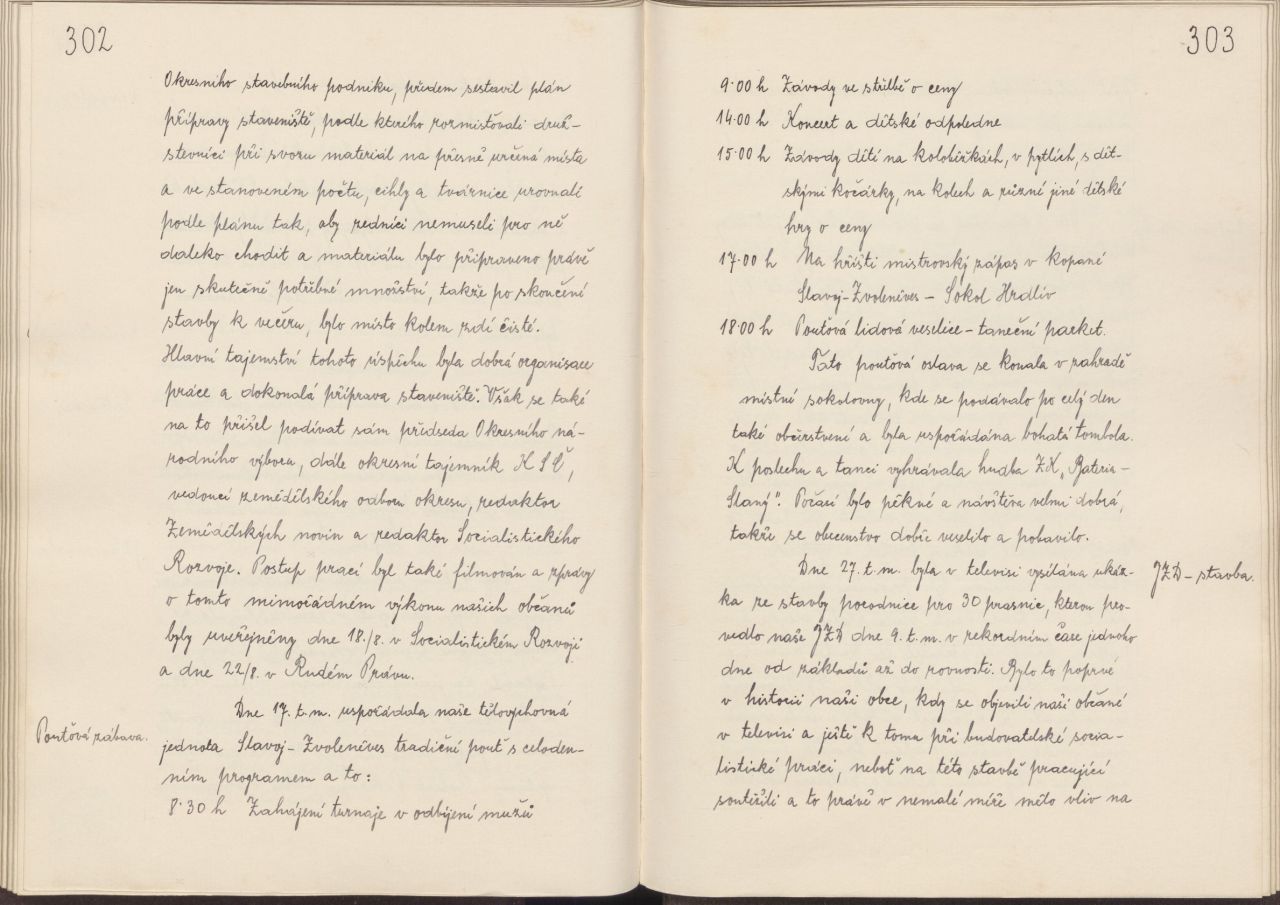 302
Okresního stavebního podniku, předem sestavil plán
přípravy staveniště, podle kterého rozmisťovali druž-
stevníci při svozu materiál na přesně určená místa
a ve stanoveném počtu, cihly a tvárnice urovnali
podle plánu tak, aby zedníci nemuseli pro ně
daleko chodit a materiálu bylo připraveno právě
jen skutečně potřebné množství, takže po skončení
stavby k večeru, bylo místo kolem zdí čisté.
Hlavní tajemství tohoto úspěchu byla dobrá organisace
práce a dokonalá příprava staveniště. Však se také
na to přišel podívat sám předseda Okresního ná-
rodního výboru, dále okresní tajemník KSČ,
vedoucí zemědělského odboru okresu, redaktor
Zemědělských novin a redaktor Socialistického
Rozvoje. Postup prací byl také filmován a zprávy
o tomto mimořádném výkonu našich občanů
byly uveřejněny dne 18./8. v Socialistickém Rozvoji
a dne 22/8. v Rudém Právu.
Poutová zábava.
Dne 17. t.m. uspořádala naše tělovýchovná
jednota Slavoj-Zvoleněves tradiční pouť s celoden-
ním programem a to:
8·30 h Zahájení turnaje v odbíjení mužů
303
9·00 h Závody ve střelbě o ceny
14·00 h Koncert a dětské odpoledne
15·00 h Závody dětí na koloběžkách, v pytlích, s dět-
skými kočárky, na kolech a různé jiné dětské
hry o ceny
17·00 h Na hřišti mistrovský zápas v kopané
Slavoj-Zvoleněves - Sokol Hrdlív
18·00 h Pouťová lidová veselice - taneční parket.
Tato pouťová oslava se konala v zahradě
místní sokolovny, kde se podávalo po celý den
také občerstvení a byla uspořádána bohatá tombola.
K poslechu a tanci vyhrávala hudba ZK „Bateria-
Slaný". Počasí bylo pěkné a návštěva velmi dobrá,
takže se obecenstvo dobře veselilo a pobavilo.
JZD - stavba.
Dne 27. t.m. byla v televisi vysílána ukáz-
ka ze stavby porodnice pro 30 prasnic, kterou pro-
vedlo naše JZD dne 9. t.m. v rekordním čase jednoho
dne od základů až do rovnosti. Bylo to poprvé
v historii naší obce, kdy se objevili naši občané
v televisi a ještě k tomu při budovatelské socia-
listické práci, neboť na této stavbě pracující
soutěžili a to právě v nemalé míře mělo vliv na